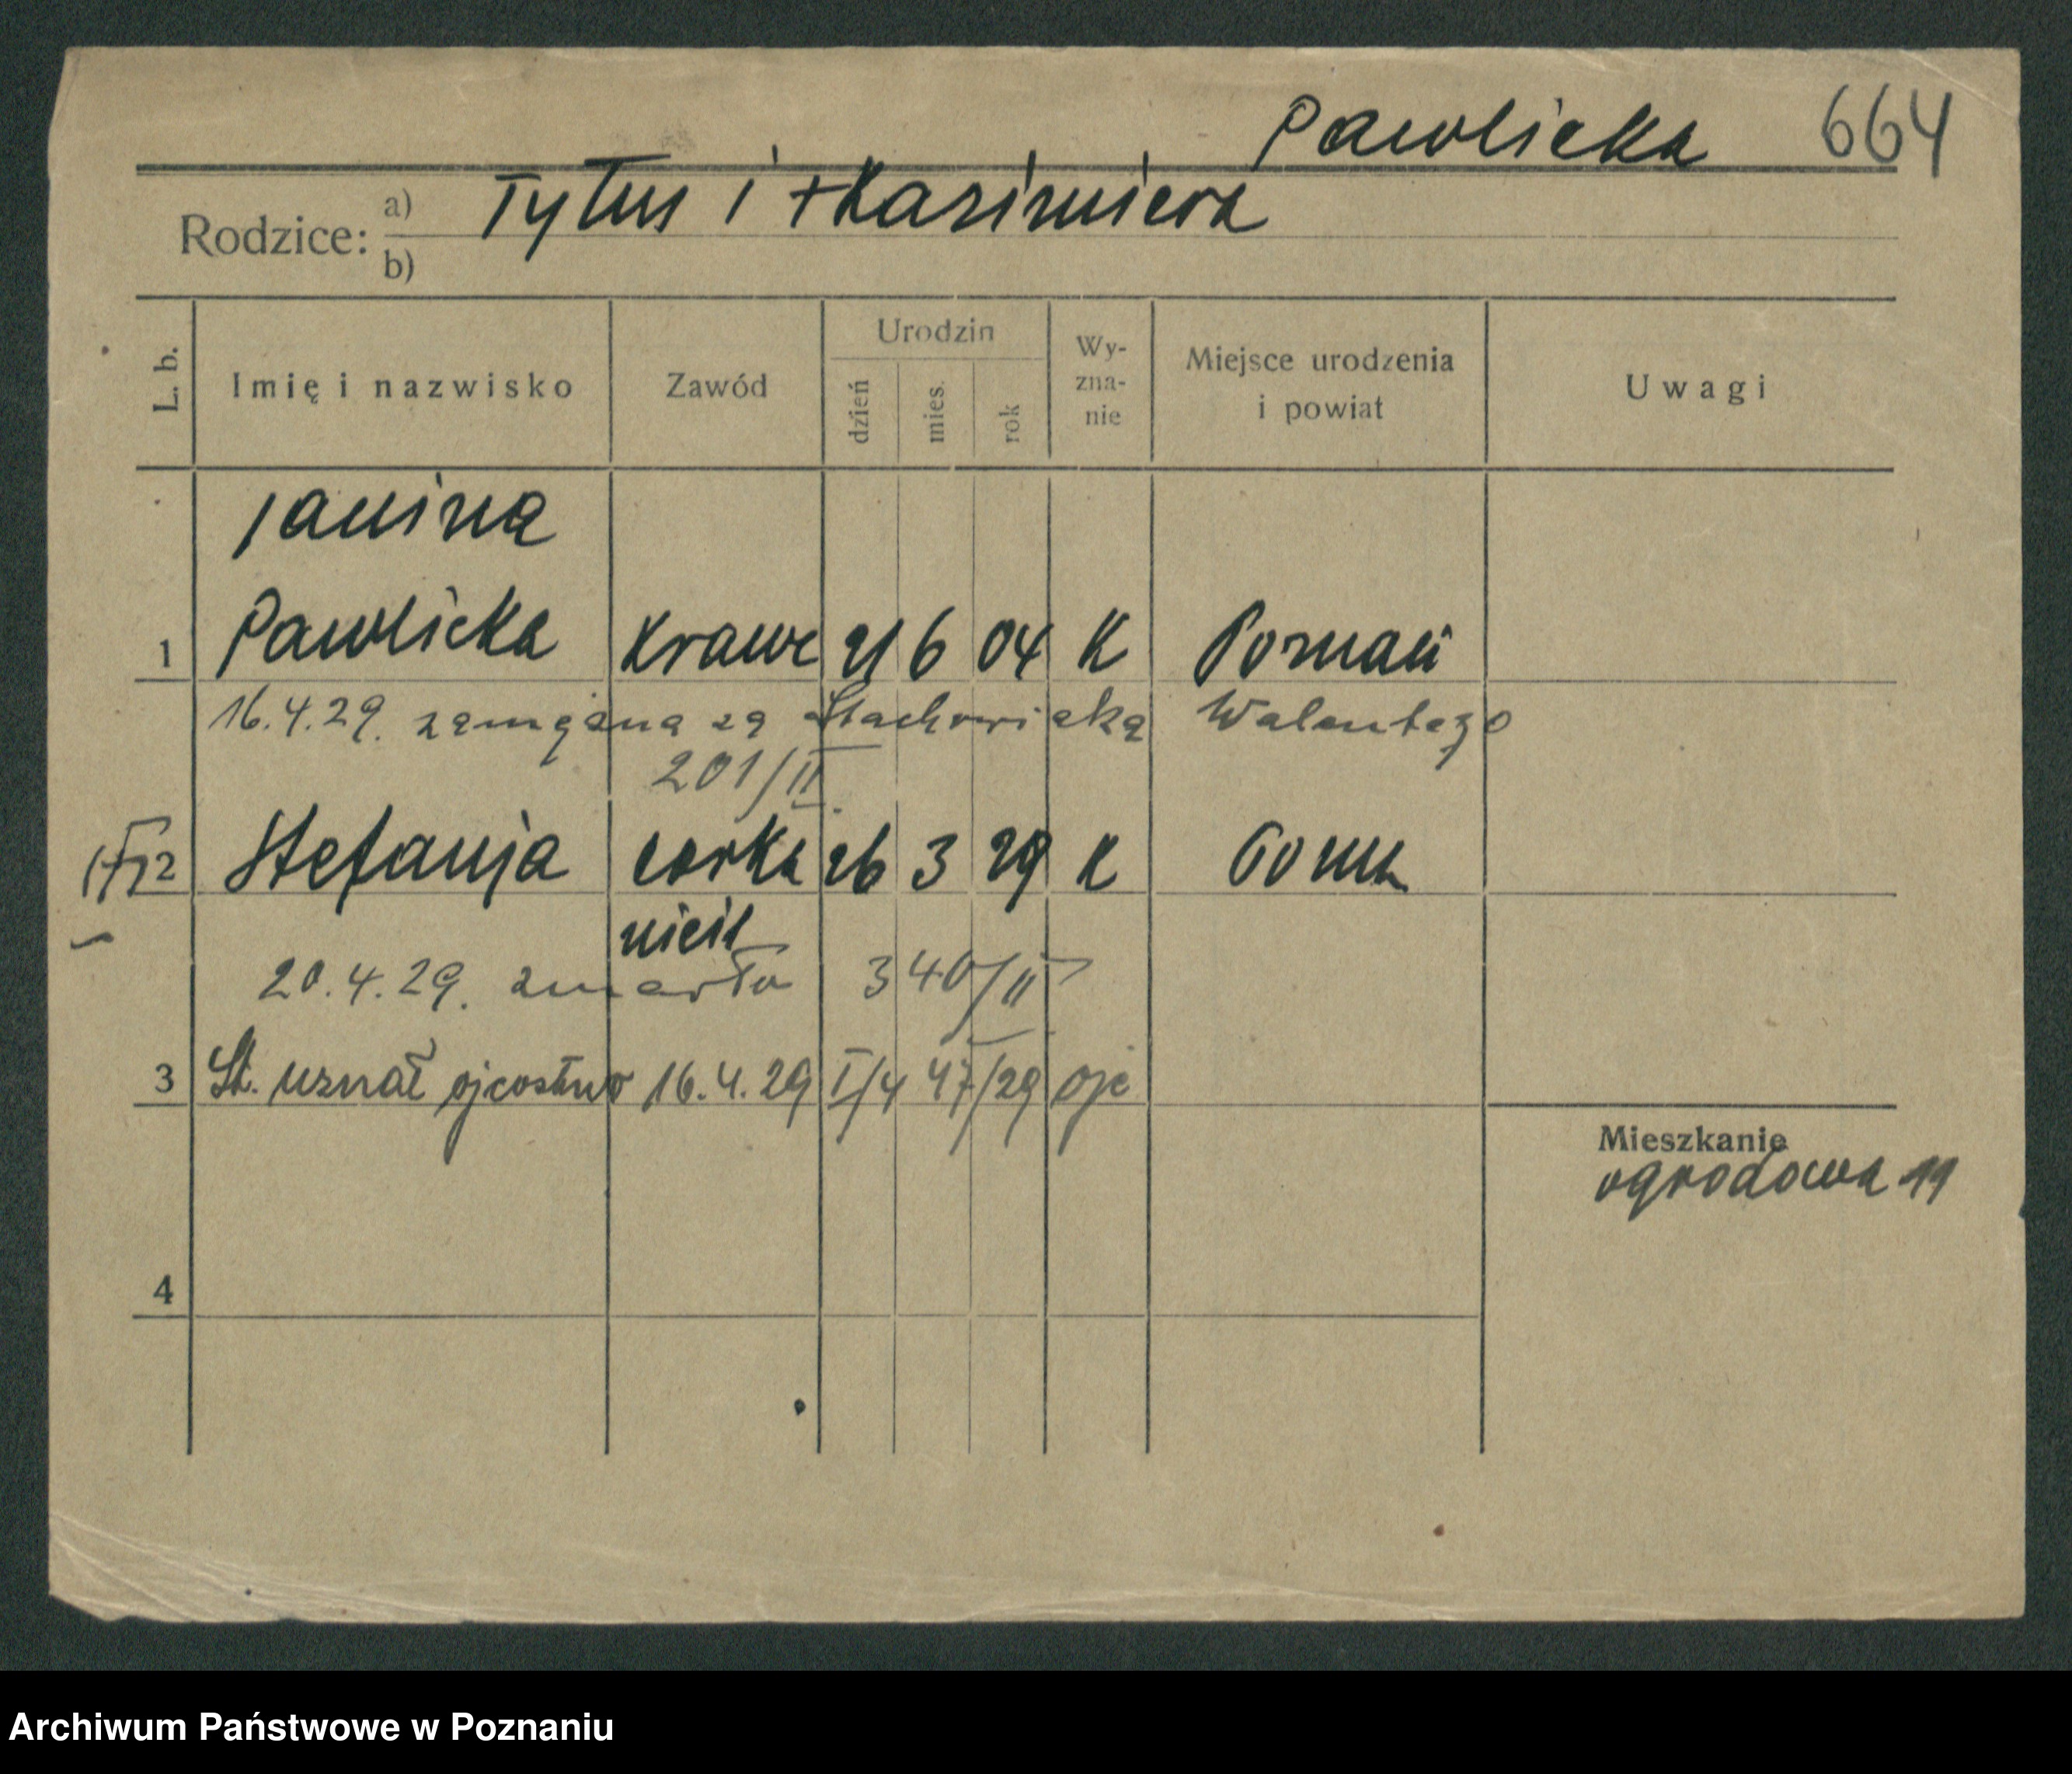 Pawlicka 664
Rodzice: a) Tytus i +Kazimiera
b)
L. b. Imię i nazwisko Zawód Urodzin dzień mies. rok Wy-zna-nie Miejsce urodzenia i powiat Uwagi
Janina
1 Pawlicka Krawc 21 6 04 K Poznań
16.4.29. zamężna za Stachowiaka Walentego
201/II
2 Stefanja corka 26 3 29 K Pozna
nieśl
20.4.29. zmarła 340/II
3 St. uznał ojcostwo 16.4.29 I/4 47/29 ojc
Mieszkanie
ogrodowa 11
4
Archiwum Państwowe w Poznaniu